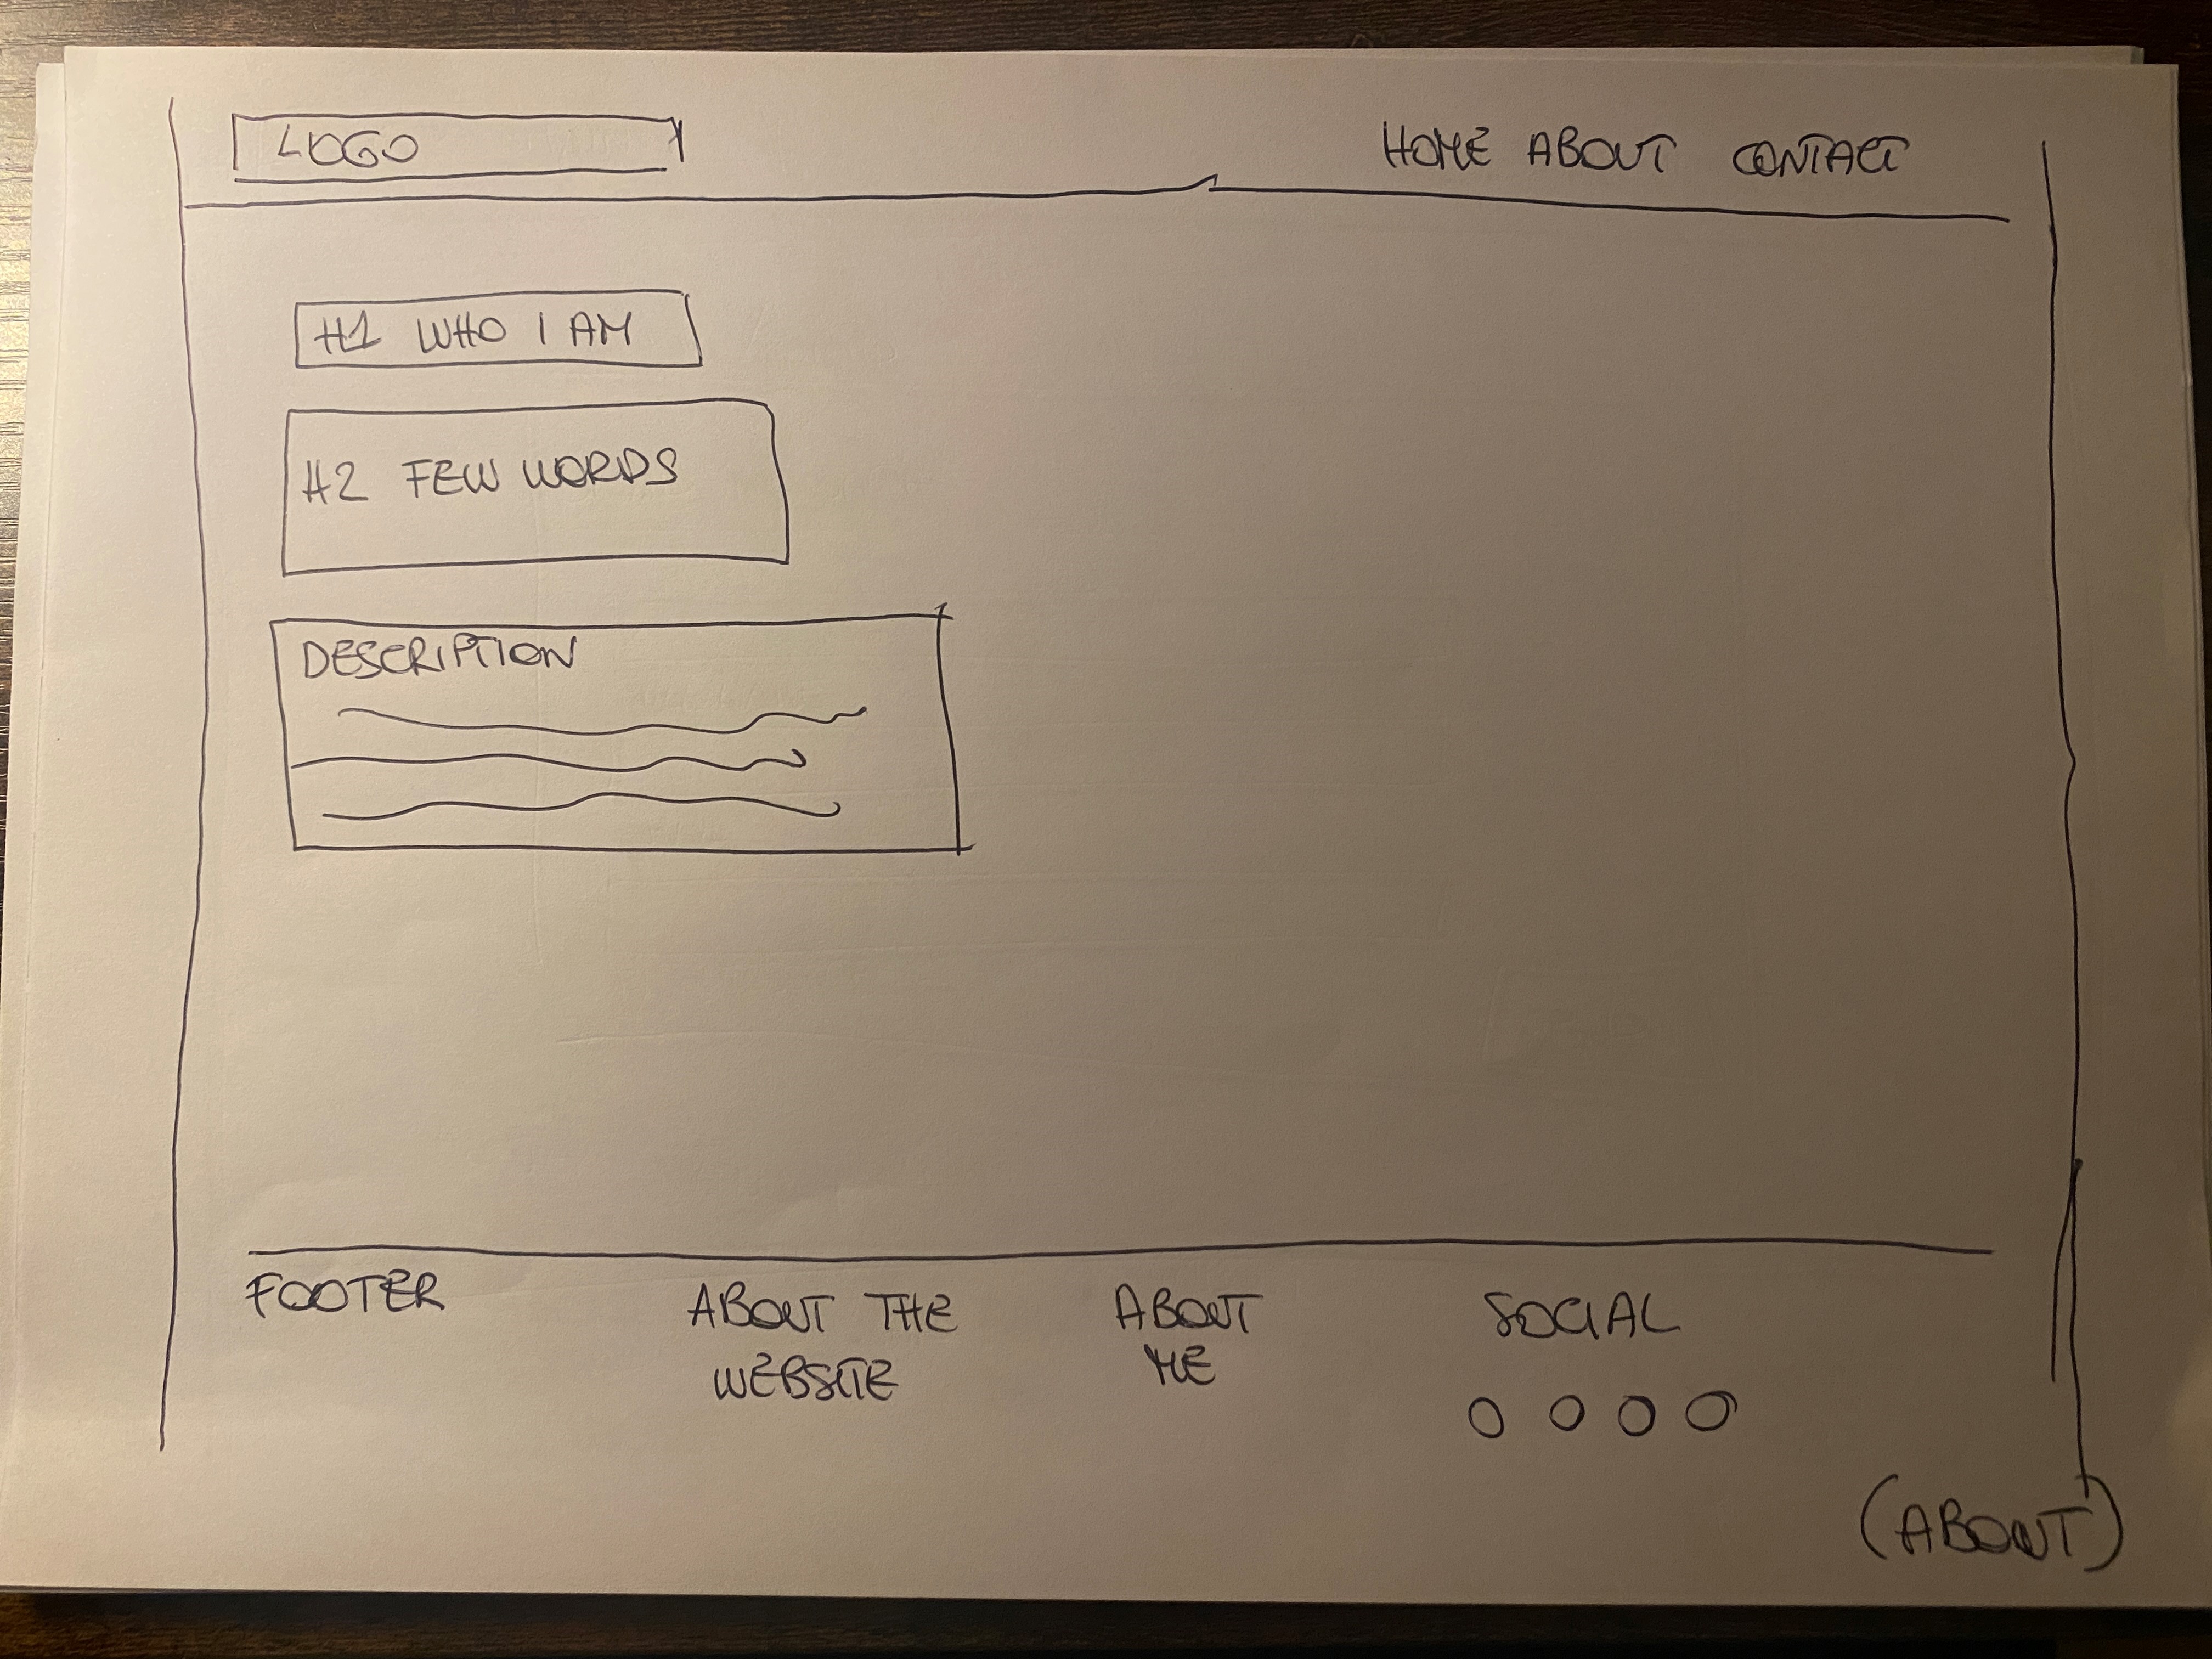 LOGO
HOME ABOUT CONTACT
H1 WHO I AM
H2 FEW WORDS
DESCRIPTION
FOOTER
ABOUT THE
WEBSITE
ABOUT
ME
SOCIAL
(ABOUT)